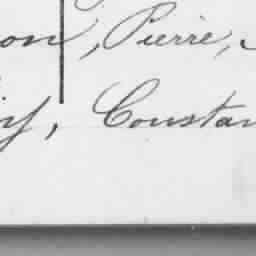 on, Pierre,
y, Constan